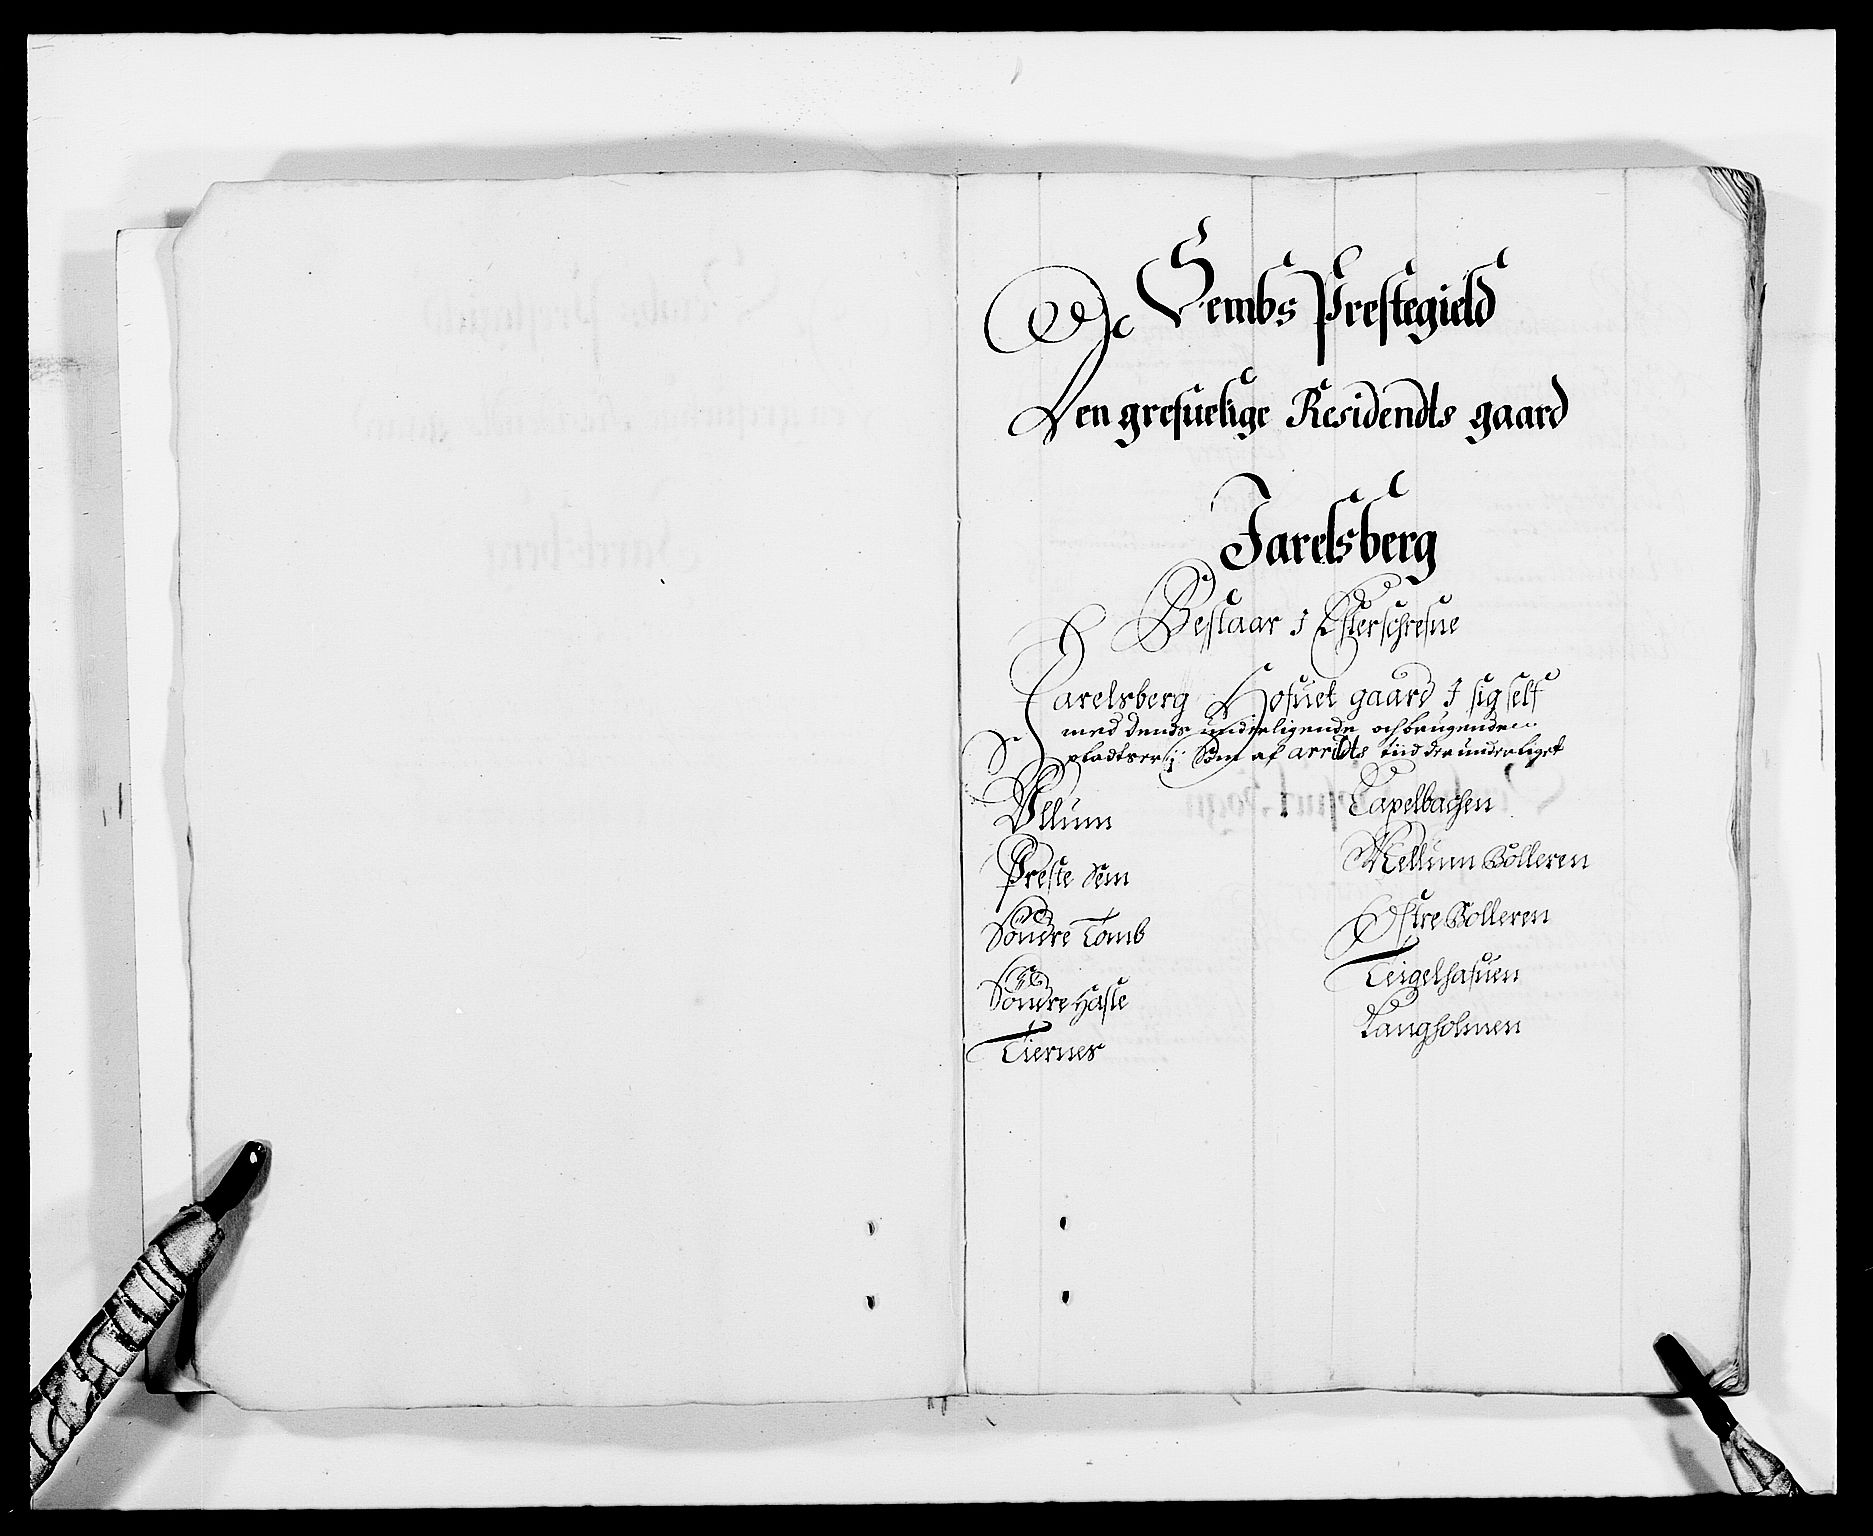 Sembs Prestegield
Den grefuelige Residendts gaard
Jarelsberg
Bestaar J Effterschrefue
Jarelsberg Hofuet gaard J sig self
med dends underligende och brugende
pladtser, som af arrildts tiid der underliget
Ullum
Preste Sem
Søndre Tomb
Søndre Hasle
Tiernes
Capelbachen
Mellum Bolleren
Østre Bolleren
Teigelhafuen
Langholmen